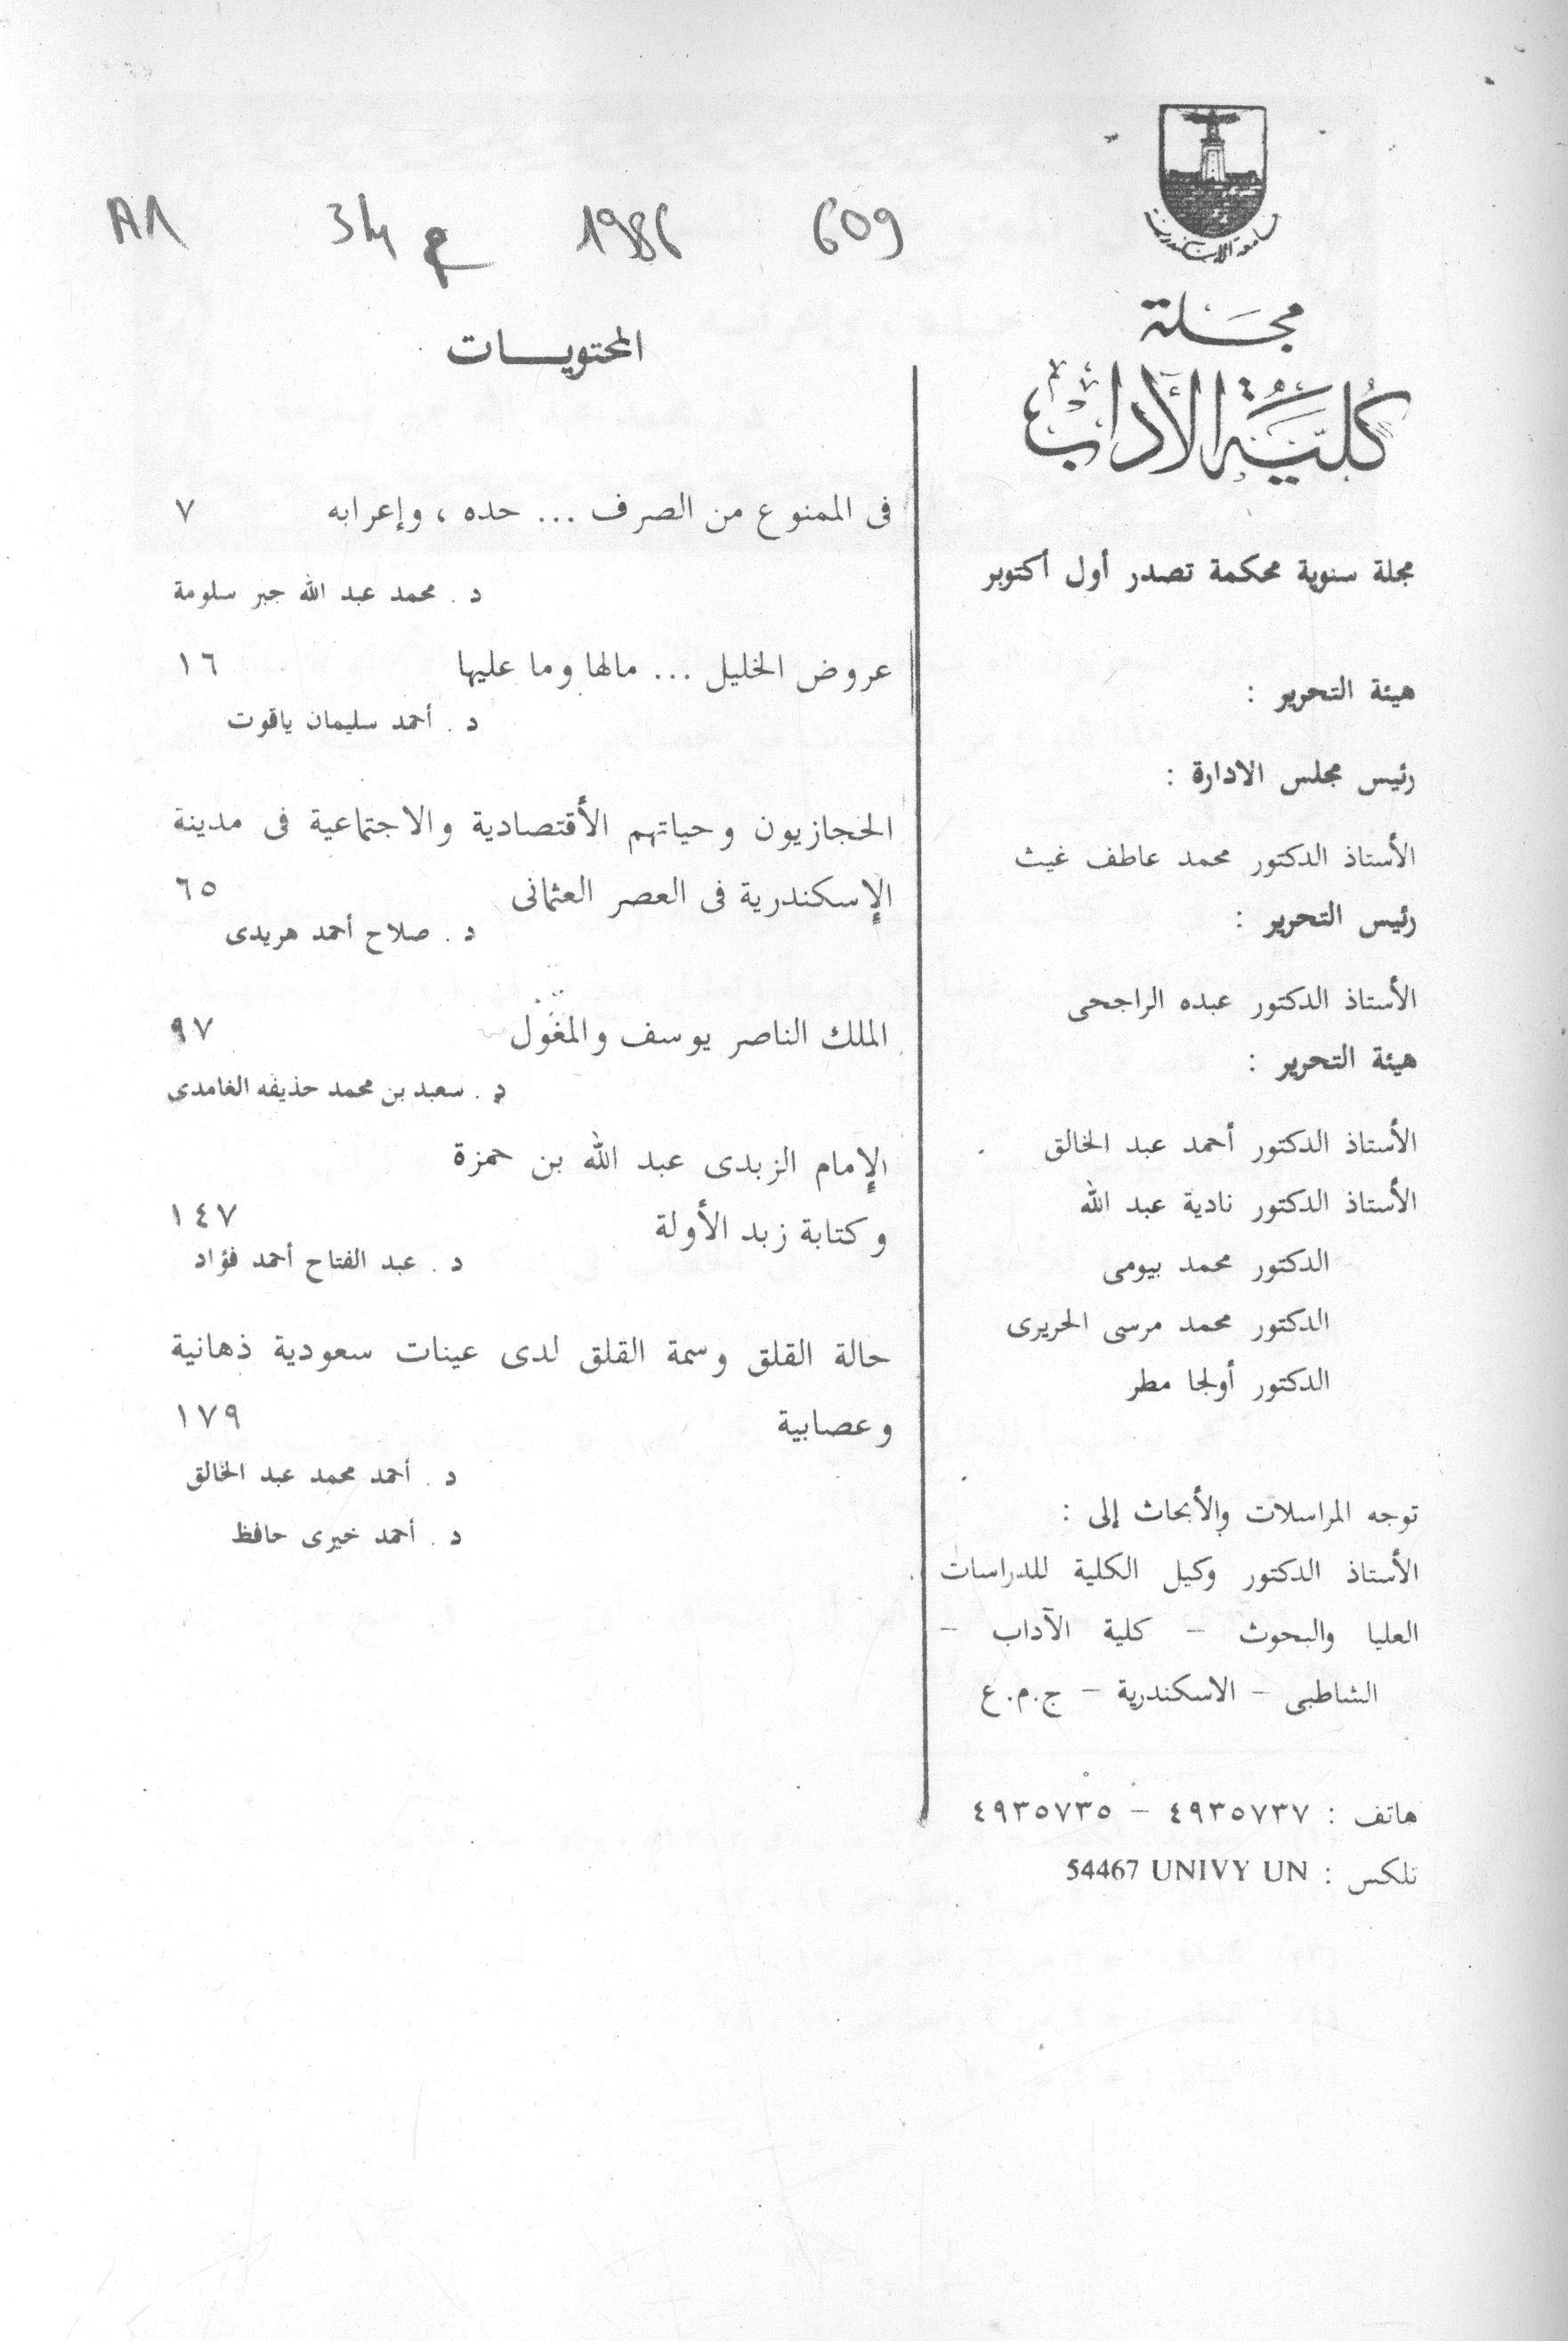 جامعة الإسكندرية
مجلة
كلية الآداب
مجلة سنوية محكمة تصدر أول أكتوبر
هيئة التحرير :
رئيس مجلس الادارة :
الأستاذ الدكتور محمد عاطف غيث
رئيس التحرير :
الأستاذ الدكتور عبده الراجحى
هيئة التحرير :
الأستاذ الدكتور أحمد عبد الخالق
الأستاذ الدكتور نادية عبد الله
الدكتور محمد بيومى
الدكتور محمد مرسى الحريرى
الدكتور أولجا مطر
توجه المراسلات والأبحاث إلى :
الأستاذ الدكتور وكيل الكلية للدراسات
العليا والبحوث - كلية الآداب -
الشاطبى - الاسكندرية - ج.م.ع
هاتف : ٤٩٣٥٧٣٧ - ٤٩٣٥٧٣٥
تلكس : 54467 UNIVY UN
609 1986 ج 34
المحتويـــات
فى الممنوع من الصرف ... حده ، وإعرابه ٧
د . محمد عبد الله جبر سلومة
عروض الخليل ... مالها وما عليها ١٦
د . أحمد سليمان ياقوت
الحجازيون وحياتهم الأقتصادية والاجتماعية فى مدينة
الإسكندرية فى العصر العثمانى ٦٥
د . صلاح أحمد هريدى
الملك الناصر يوسف والمغول ٩٧
د . سعيد بن محمد حذيفه الغامدى
الإمام الزيدى عبد الله بن حمزة
وكتابة زبد الأولة ١٤٧
د . عبد الفتاح أحمد فؤاد
حالة القلق وسمة القلق لدى عينات سعودية ذهانية
وعصابية ١٧٩
د . أحمد محمد عبد الخالق
د . أحمد خيرى حافظ